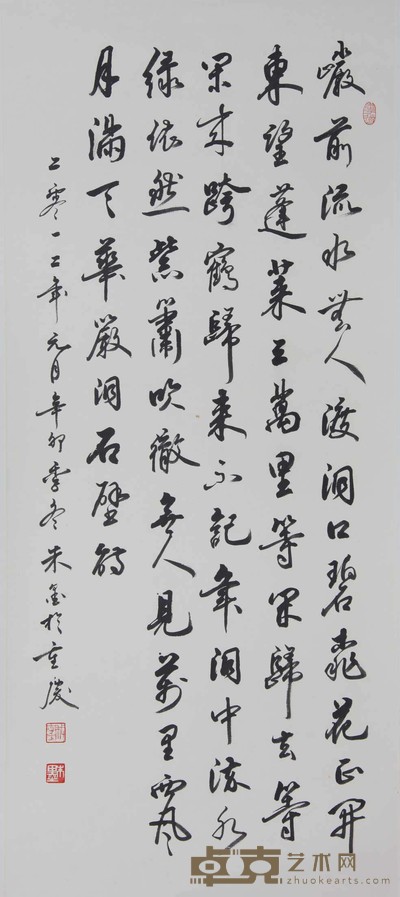 巖前流水無人渡洞口碧桃花正開
東望蓬萊三萬里等閑歸去等
閑來跨鶴歸來不記年洞中流水
綠依然紫簫吹徹無人見萬里西風
月滿天華嚴洞石壁詩
二零一二年元月辛卯季冬朱於重慶
卓克艺术网
zhuokearts.com